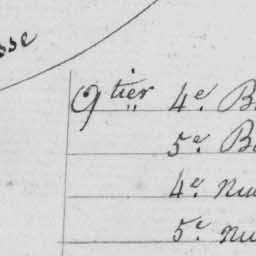 sse
9.tier 4.e B
5.e B
4.e nu
5.e nu